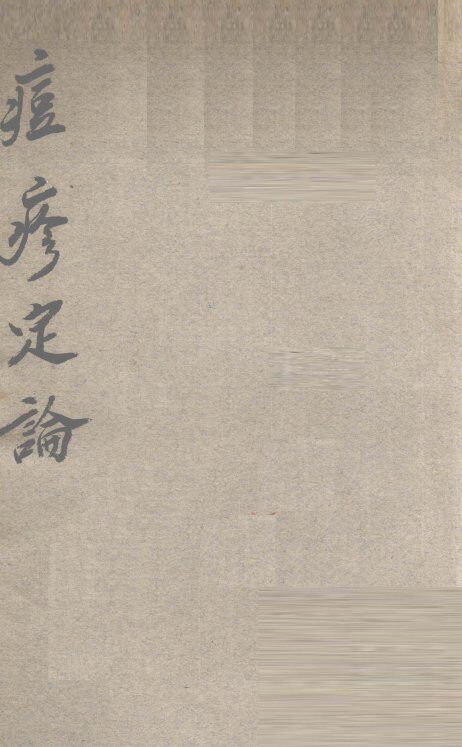 痘疹定論